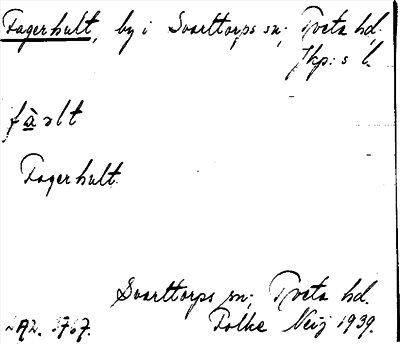 Fagerhult, by i Svarttorps sn; Tveta hd.
Jkp:s l.
fàlt
Fagerhult.
Svarttorps sn; Tveta hd.
Folke Neij 1939.